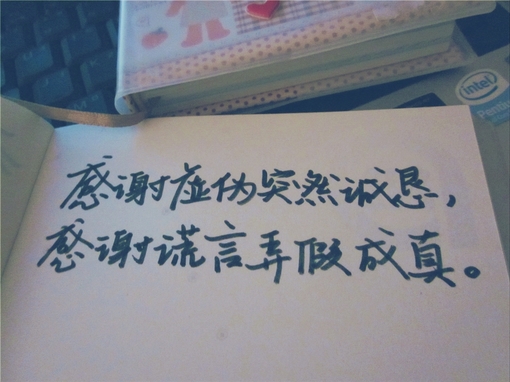 intel
Pentium
感谢虚伪突然诚恳，
感谢谎言弄假成真。